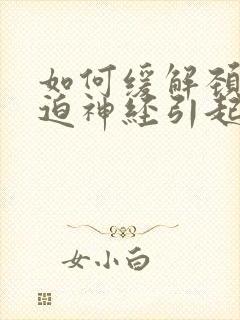 如何缓解颈
迫神经引起
女小白